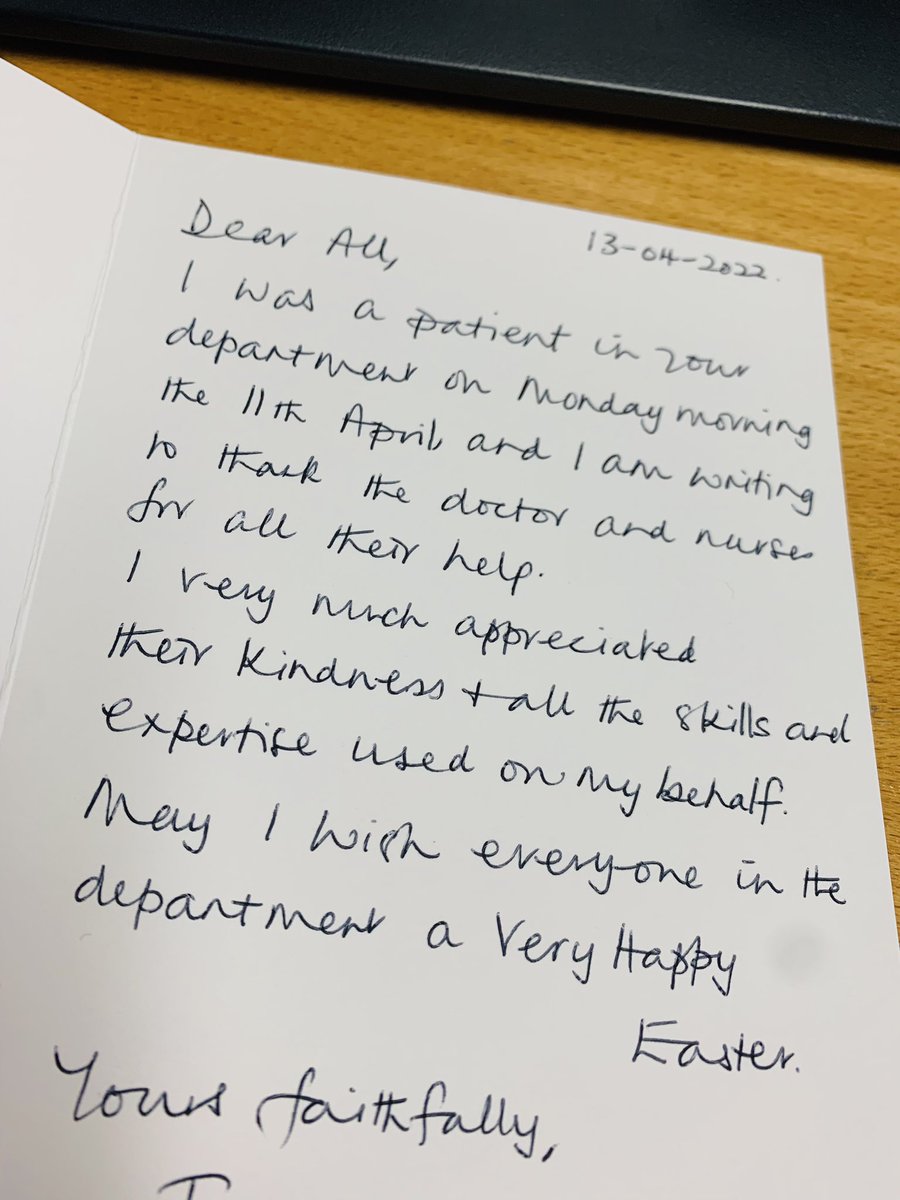 13-04-2022.
Dear All,
I was a patient in your
department on Monday morning
the 11th April, and I am writing
to thank the doctor and nurses
for all their help.
I very much appreciated
their kindness + all the skills and
expertise used on my behalf.
May I wish everyone in the
department a Very Happy
Easter.
Yours faithfully,